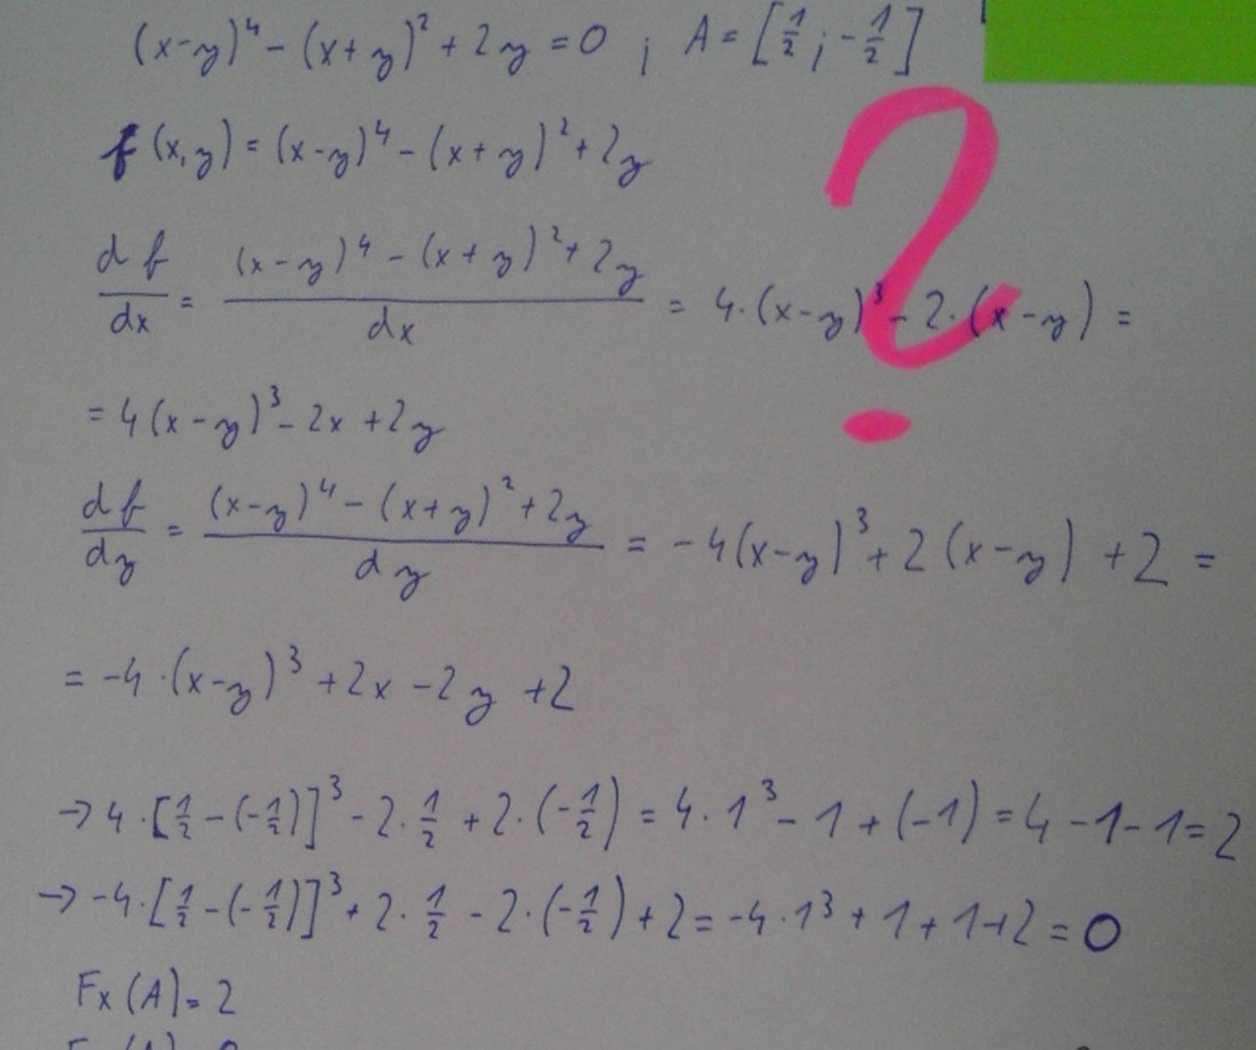 (x-y)⁴ - (x+y)² + 2y = 0 ; A = [1/2 ; -1/2]
f(x,y) = (x-y)⁴ - (x+y)² + 2y
df/dx = (x-y)⁴ - (x+y)² + 2y / dx = 4·(x-y)³ - 2·(x-y) =
= 4(x-y)³ - 2x + 2y
df/dy = (x-y)⁴ - (x+y)² + 2y / dy = -4(x-y)³ + 2(x-y) + 2 =
= -4·(x-y)³ + 2x - 2y + 2
→ 4·[1/2 - (-1/2)]³ - 2·1/2 + 2·(-1/2) = 4·1³ - 1 + (-1) = 4 - 1 - 1 = 2
→ -4·[1/2 - (-1/2)]³ + 2·1/2 - 2·(-1/2) + 2 = -4·1³ + 1 + 1 + 2 = 0
Fx(A) = 2
?